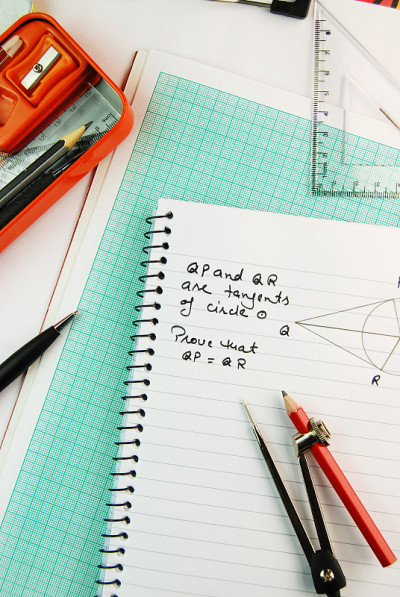 QP and QR
are tangents
of circle O
Prove that
QP = QR
Q
R